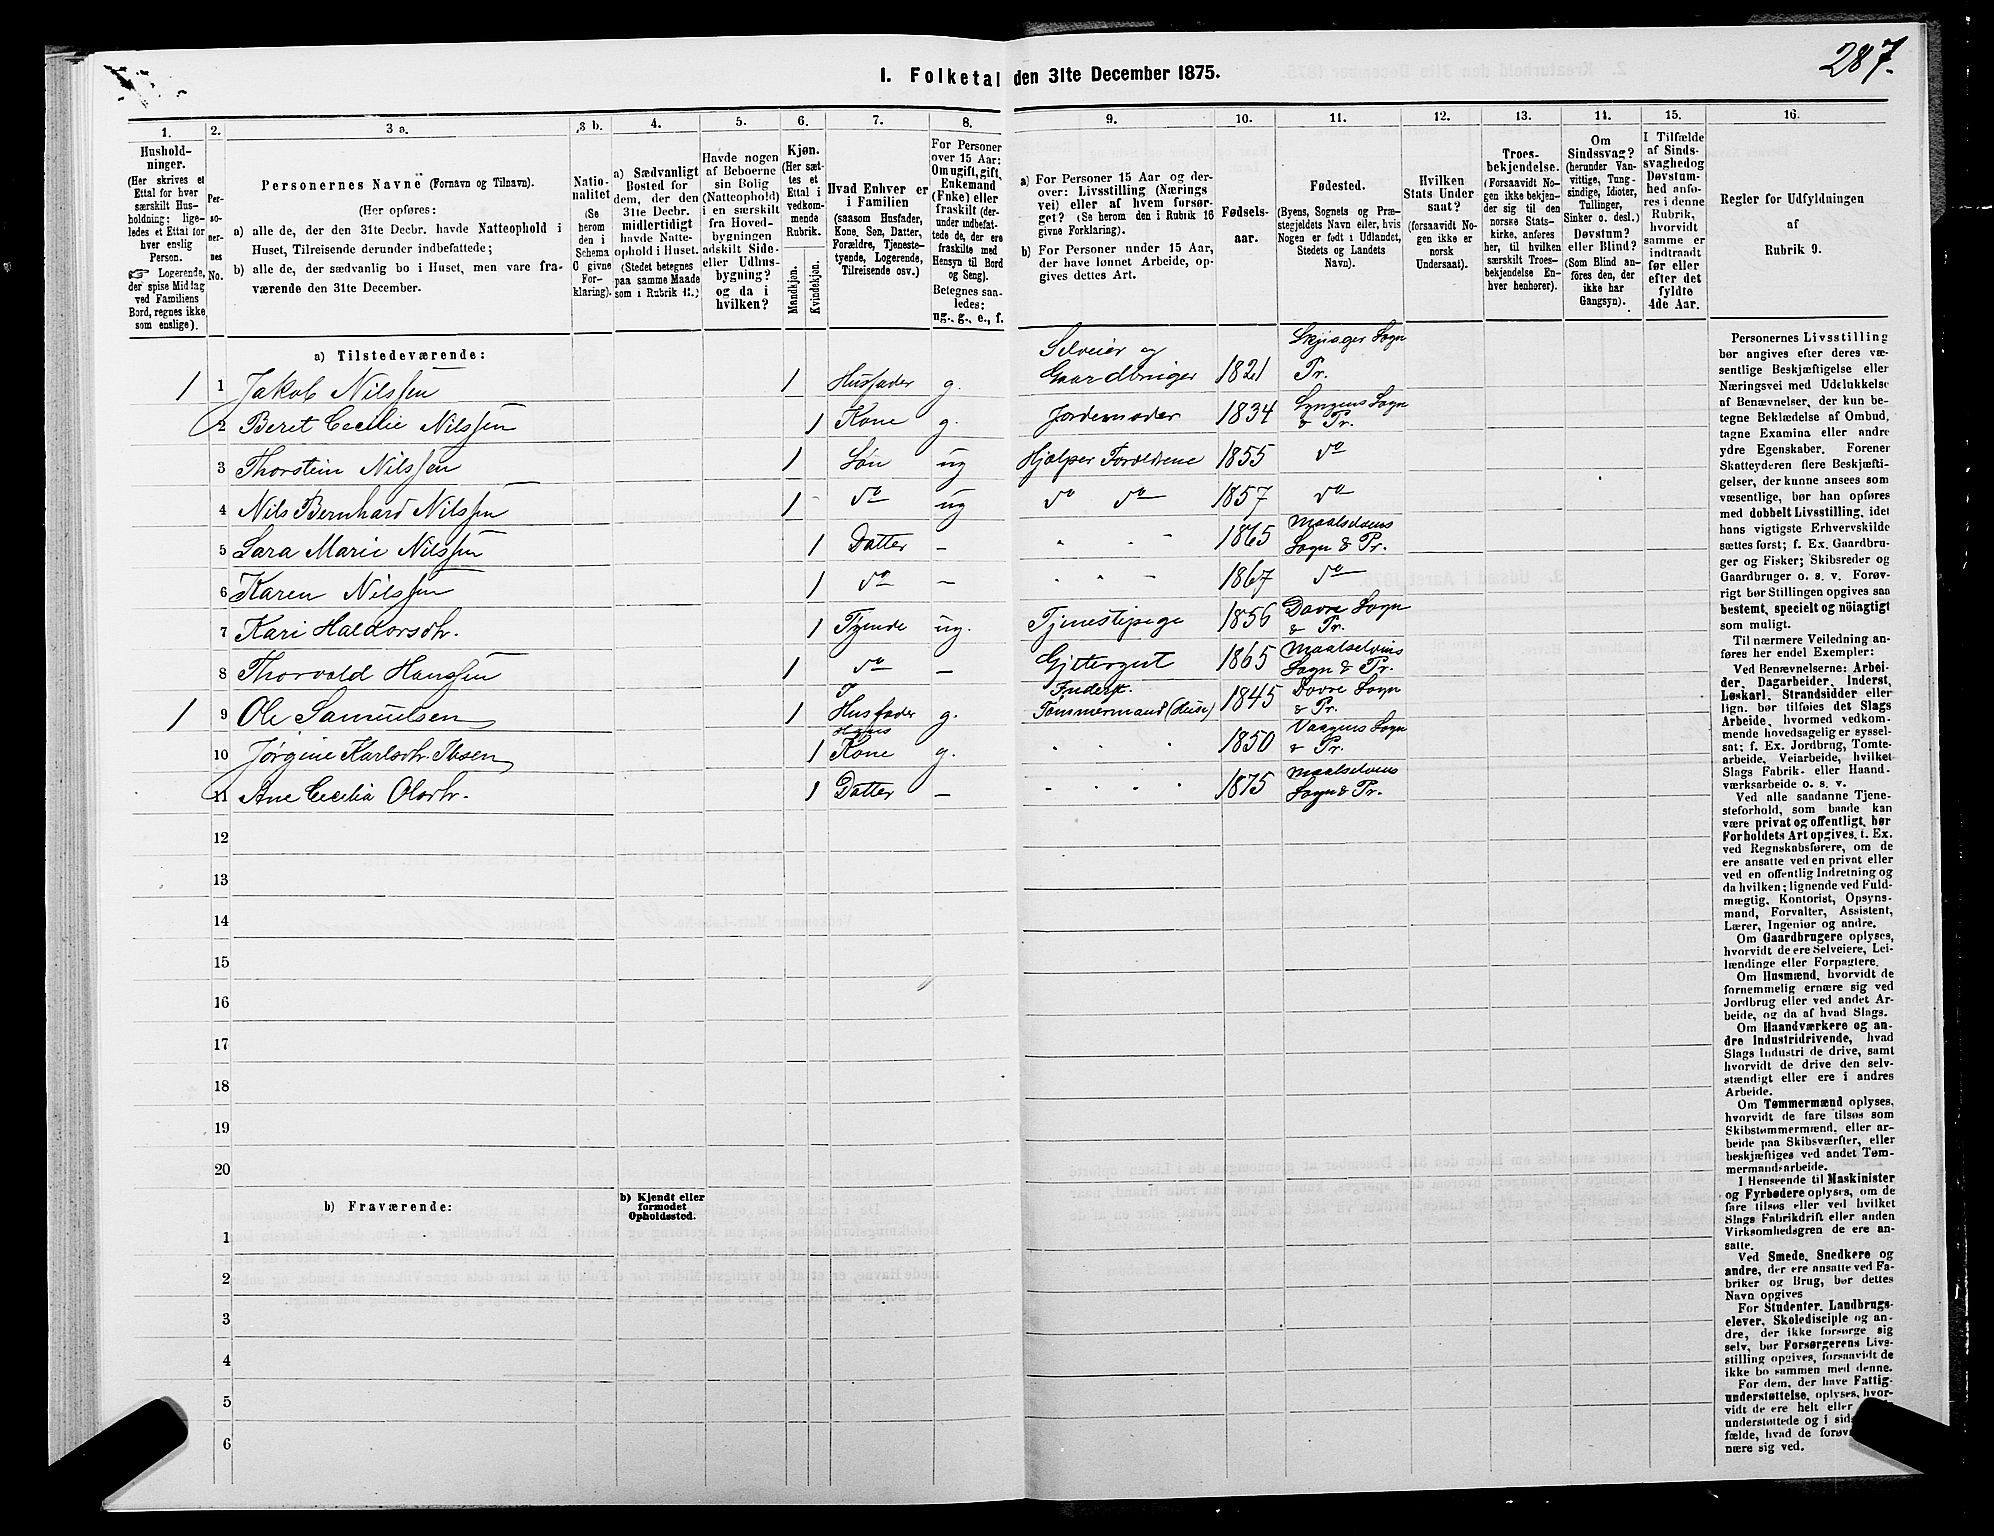 287.
I. Folketal den 31te December 1875.
1. 2. 3 a. 3 b. 4. 5. 6. 7. 8. 9. 10. 11. 12. 13. 14. 15. 16.
Hushold-
ninger.
(Her skrives et
Ettal for hver
særskilt Hus-
holdning; lige-
ledes et Ettal for
hver enslig
Person.
☞ Logerende,
der spise Middag
ved Familiens
Bord, regnes ikke
som enslige).
Per-
so-
ner-
nes
No.
Personernes Navne (Fornavn og Tilnavn).
(Her opføres:
a) alle de, der den 31te Decbr. havde Natteophold i
Huset, Tilreisende derunder indbefattede;
b) alle de, der sædvanlig bo i Huset, men vare fra-
værende den 31te December.
Natio-
nalitet
(Se
herom
den i
Schema
C givne
For-
klaring).
a) Sædvanligt
Bosted for
dem, der den
31te Decbr.
midlertidigt
havde Natte-
ophold i Huset.
(Stedet betegnes
paa samme Maade
som i Rubrik 11.)
Havde nogen
af Beboerne
sin Bolig
(Natteophold)
i en særskilt
fra Hoved-
bygningen
adskilt Side-
eller Udhus-
bygning?
og da i
hvilken?
Kjøn.
(Her sæt-
tes et
Ettal i
vedkom-
mende
Rubrik.
Mandkjøn.
Kvindekjøn.
Hvad Enhver er
i Familien
(saasom Husfader,
Kone, Søn, Datter,
Forældre, Tjeneste-
tyende, Logerende,
Tilreisende osv.)
For Personer
over 15 Aar:
Om ugift, gift,
Enkemand
(Enke) eller
fraskilt (der-
under indbefat-
tede de, der ere
fraskilte med
Hensyn til Bord
og Seng).
Betegnes saa-
ledes:
ug., g., e., f.
a) For Personer 15 Aar og der-
over: Livsstilling (Nærings
vei) eller af hvem forsør-
get? (Se herom den i Rubrik 16
givne Forklaring).
b) For Personer under 15 Aar,
der have lønnet Arbeide, op-
gives dettes Art.
Fødsels-
aar.
Fødested.
(Byens, Sognets og Præ-
stegjeldets Navn eller, hvis
Nogen er født i Udlandet,
Stedets og Landets
Navn).
Hvilken
Stats Under-
saat?
(forsaavidt No-
gen ikke er
norsk
Undersaat).
Troes-
bekjendelse.
(Forsaavidt No-
gen ikke bekjen-
der sig til den
norske Stats-
kirke, anføres
her, til hvilken
særskilt Troes-
bekjendelse En-
hver henhører).
Om
Sindssvag?
(herunder Van-
vittige, Tung-
sindige, Idioter,
Tullinger,
Sinker o. desl.)
Døvstum?
eller Blind?
(Som Blind an-
føres den, der
ikke har
Gangsyn).
I Tilfælde
af Sinds-
svaghed og
Døvstum-
hed anfø-
res i denne
Rubrik,
hvorvidt
samme er
indtraadt
før eller
efter det
fyldte
4de Aar.
Regler for Udfyldningen
af
Rubrik 9.
a) Tilstedeværende:
1 1 Jakob Nilssen 1 Husfader g. Selveier og Gaardbruger 1821 Skjiager Sogn Pr.
2 Beret Cecilie Nilssen 1 Kone g. Jordemoder 1834 Lyngens Sogn & Pr.
3 Thorstein Nilssen 1 Søn ug Hjælper Foreldrene 1855 do
4 Nils Bernhard Nilssen 1 do ug do do 1857 do
5 Sara Marie Nilssen 1 Datter – " " – 1865 Maalselvens Sogn & Pr.
6 Karen Nilssen 1 do – " " – 1867 do
7 Kari Haldorsdtr. 1 Tyende ug. Tjenestepige 1856 Dovre Sogn & Pr.
8 Thorvald Hanssen 1 do – Gjættergut 1865 Maalselvens Sogn & Pr.
1 9 Ole Samuelsen 1 Husfader g. Inderst. Tømmermand (Huse) 1845 Dovre Sogn & Pr.
10 Jørgine Karlsdtr. Ibsen 1 Hans Kone g. " " " 1850 Vaagens Sogn & Pr.
11 Ane Cecilia Olsdtr. 1 Datter – " " " " 1875 Maalselvens Sogn & Pr.
12
13
14
15
16
17
18
19
20
b) Fraværende:
b) Kjendt eller
formodet
Opholdssted.
1
2
3
4
5
6
Personernes Livsstilling
bør angives efter deres væ-
sentlige Beskjæftigelse eller
Næringsvei med Udelukkelse
af Benævnelser, der kun be-
tegne Beklædelse af Ombud,
tagne Examina eller andre
ydre Egenskaber. Forener
Skatteyderen flere Beskjæfti-
gelser, der kunne ansees som
væsentlige, bør han opføres
med dobbelt Livsstilling, idet
hans vigtigste Erhvervskilde
sættes først; f. Ex. Gaardbru-
ger og Fisker; Skibsreder og
Gaardbruger o. s. v. Forøv-
rigt bør Stillingen opgives saa
bestemt, specielt og nöiagtigt
som muligt.
Til nærmere Veiledning an-
føres her endel Exempler:
Ved Benævnelserne: Arbei-
der, Dagarbeider, Inderst,
Løskarl, Strandsidder eller
lign. bør tilføies det Slags
Arbeide, hvormed vedkom-
mende hovedsagelig er syssel-
sat; f. Ex. Jordbrug, Tomte-
arbeide, Veiarbeide, hvilket
Slags Fabrik- eller Haand-
værksarbeide o. s. v.
Ved alle saadanne Tjene-
steforhold, som baade kan
være privat og offentligt, bør
Forholdets Art opgives, t. Ex.
ved Regnskabsførere, om de
ere ansatte ved en privat eller
ved en offentlig Indretning og
da hvilken; lignende ved Fuld-
mægtig, Kontorist, Opsyns-
mand, Forvalter, Assistent,
Lærer, Ingeniør og andre.
Om Gaardbrugere oplyses,
hvorvidt de ere Selveiere, Lei-
lændinge eller Forpagtere.
Om Husmænd, hvorvidt de
fornemmelig ernære sig ved
Jordbrug eller ved andet Ar-
beide, og da af hvad Slags.
Om Haandværkere og an-
dre Industridrivende, hvad
Slags Industri de drive, samt
hvorvidt de drive den selv-
stændigt eller ere i andres
Arbeide.
Om Tømmermænd oplyses,
hvorvidt de fare tilsøs som
Skibstømmermænd, eller ar-
beide paa Skibsværfter, eller
beskjæftiges ved andet Tøm-
mermandsarbeide.
I Henseende til Maskinister
og Fyrbødere oplyses, om de
fare tilsøs eller ved hvilket
Slags Fabrikdrift eller anden
Virksomhedsgren de ere an-
satte.
Ved Smede, Snedkere og
andre, der ere ansatte ved Fa-
briker og Brug, bør dettes
Navn opgives
For Studenter, Landbrugs-
elever, Skoledisciple og an-
dre, der ikke forsørge sig
selv, bør Forsørgerens Livs-
stilling opgives, forsaavidt de
ikke bo sammen med denne.
For dem, der have Fattig-
understøttelse, oplyses, hvor-
vidt de ere helt eller
understøttede og i sids
fælde, hvad de forøv
nære sig ved.